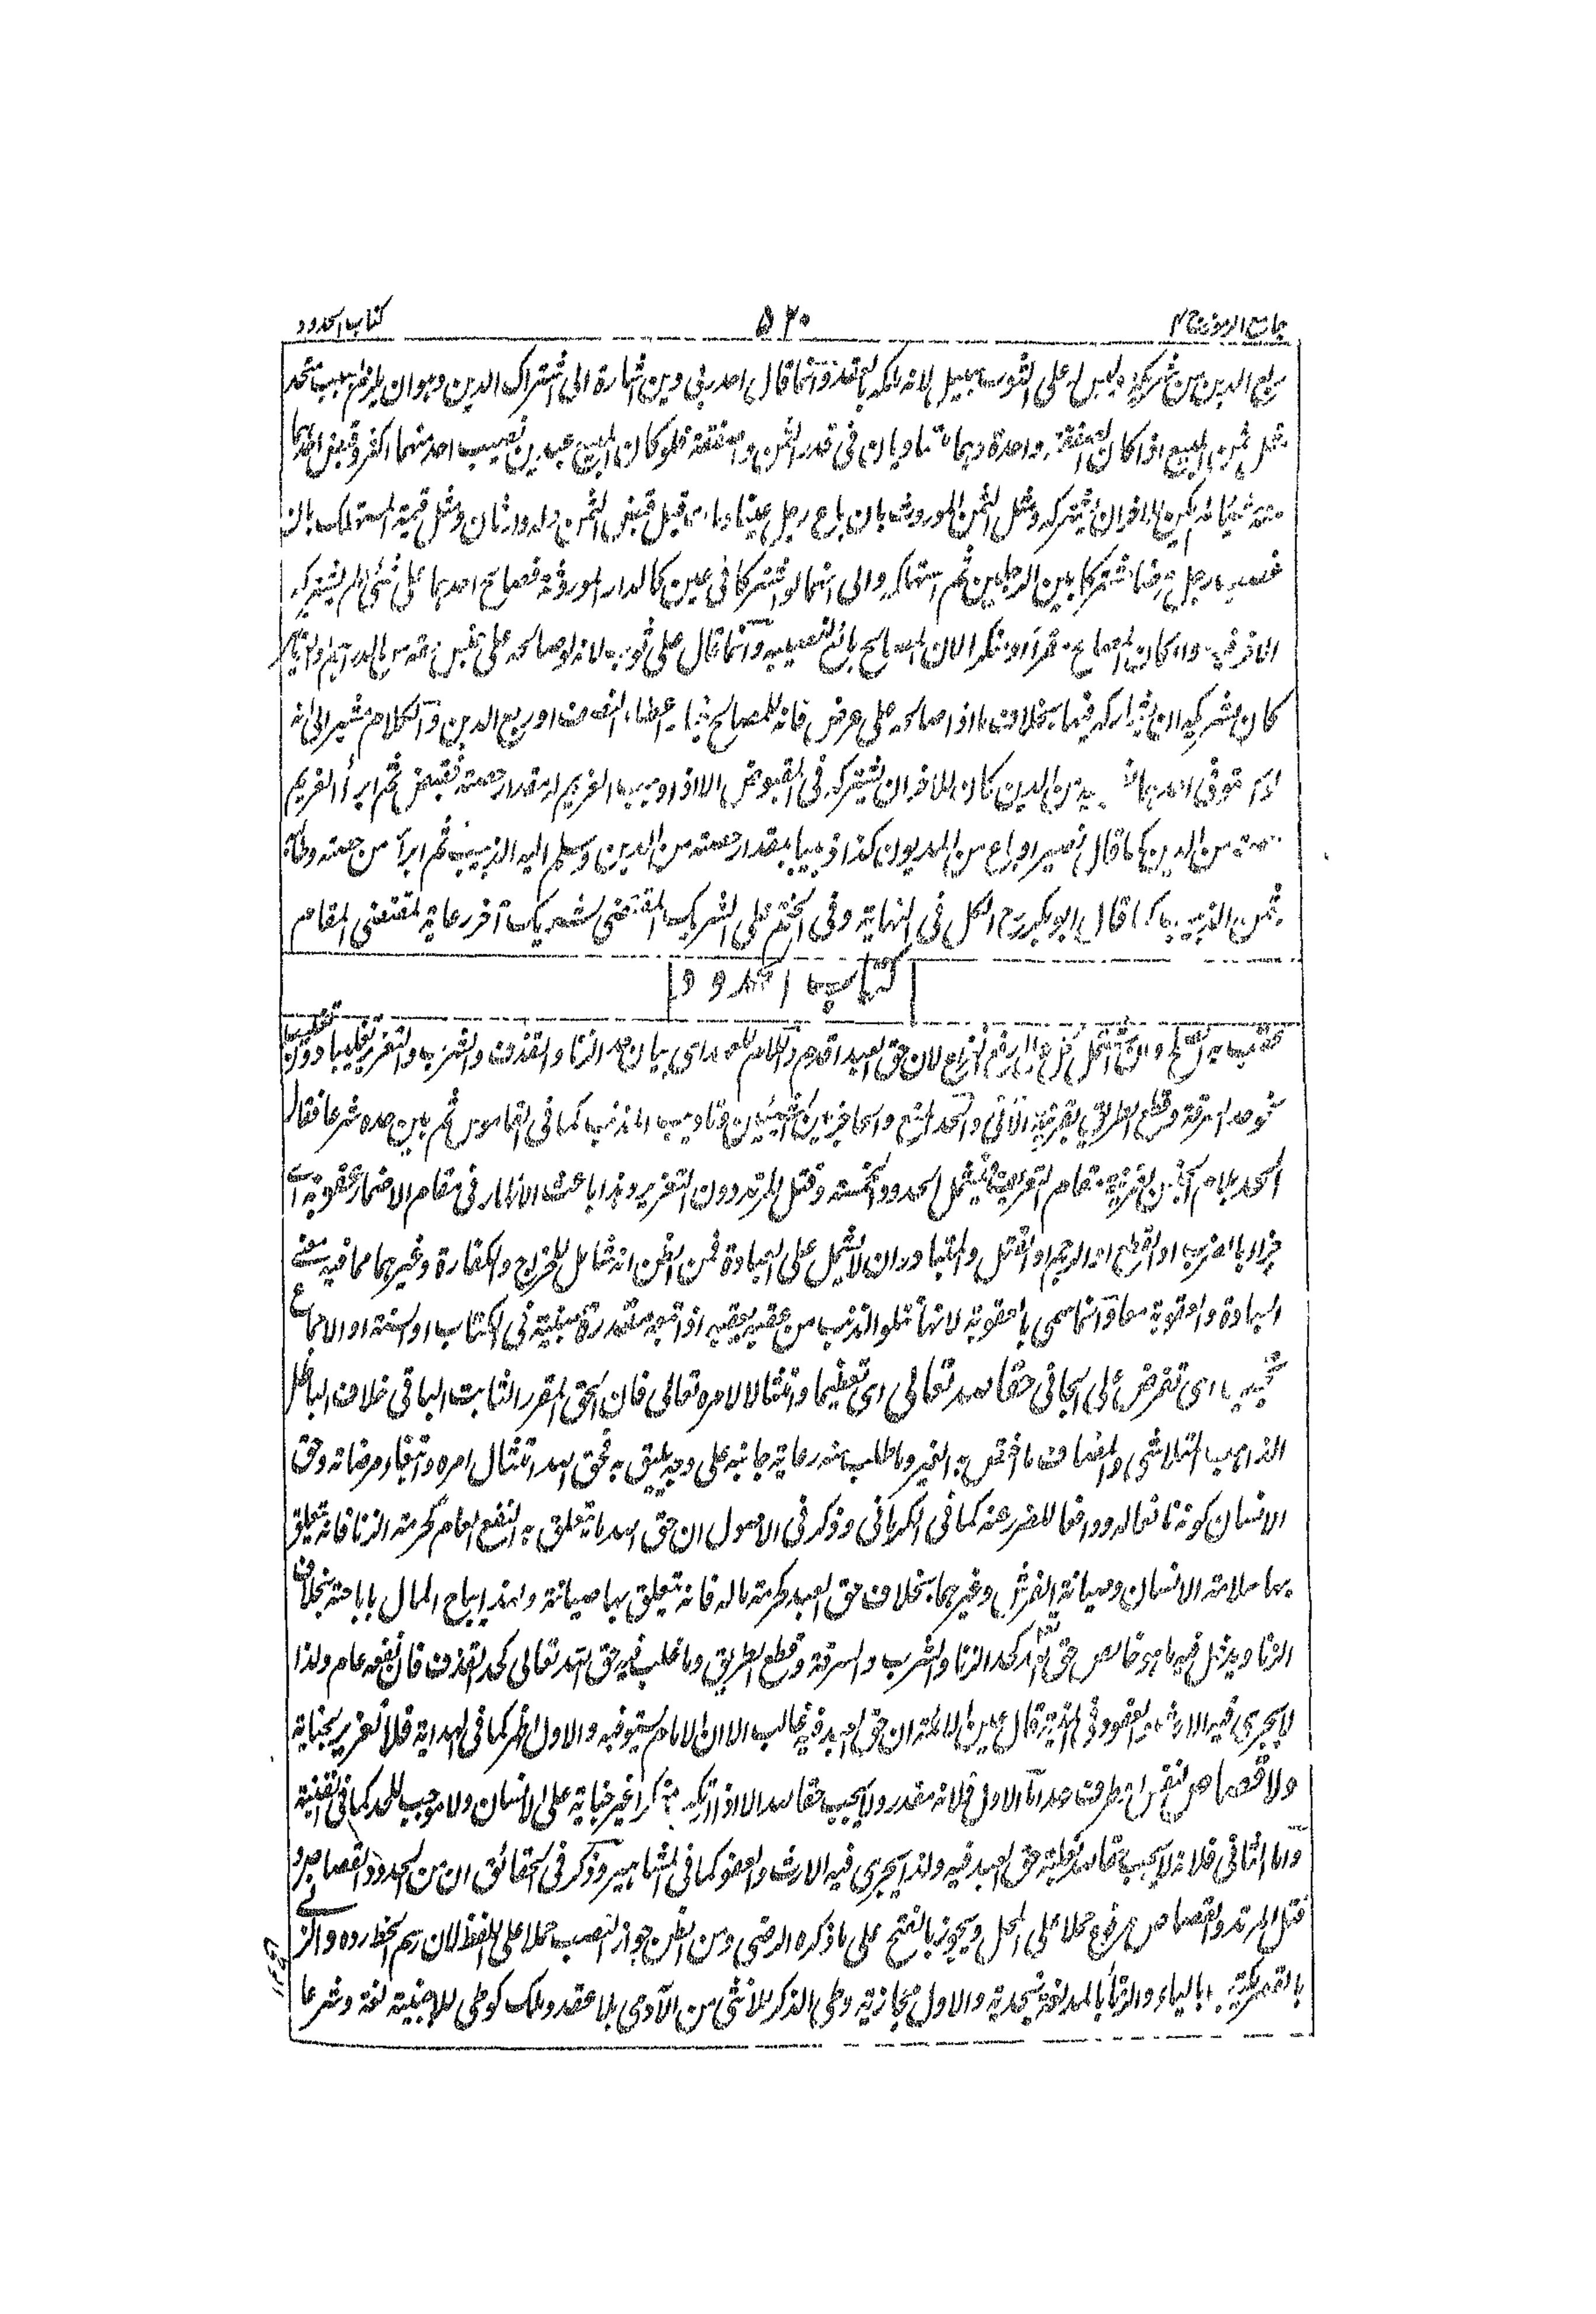 جامع الرموز ج ۲
۵۲۰
كتاب الحدود
ربع الدين من شريكه وليس له على الثوب سبيل لانه ملكه بالعقد وانما قال احد ربى دين اشارة الى اشتراك الدين وهو ان يلزم بسبب متحد
مثل ثمن المبيع اذا كان الصفقة واحدة وهما متساويان فى قدر الثمن وصفته فلو كان المبيع عبدين نصيب احد منهما اكثر وقبض احدهما
منه شيئا لم يكن للاخر ان يشتركه ومثل الثمن الموروث بان باع رجل عينا ومات قبل قبض الثمن وله وارثان ومثل قيمة المستهلك بان
غصب رجل مشتركا بين الرجلين ثم استهلكه والى انهما لو اشتركا فى عين كالدار الموروثة فصالح احدهما على شئ لم يشتركه
الاخر فيه وان كان المصالح مقرا او منكرا لان المصالح بائع لنصيبه وانما قال على ثوب لانه لو صالحه على من الدراهم
كان لشريكه ان يشاركه فيها بخلاف ما اذا صالحه على عرض فانه للمصالح اعطاء النصف او ربع الدين والكلام مشير الى انه
من الدين كان للاخر ان يشتركه فى المقبوض الا اذا وهب الغريم له مقدار حصته فقبض ثم ابرأ الغريم
حصته من الدين كما قال نصير او باع من المديون كذا زبيبا بمقدار حصته من الدين وسلم اليه الزبيب ثم ابرأ من حصته وطالبه
بثمن الزبيب كما قال ابو بكر رح الكل فى النهاية وفى الختم على الشريك المقتضى لشريك آخر رعاية لمقتضى المقام
كتاب الحدود
لان حق العبد اقدم واللام للعهد اى بيان حد الزنا والقذف والشرب والتعزير تغليبا دون
نحو حد السرقة وقطع الطريق بقرينة الآتى والحد المنع والحاجز بين الشيئين وتاديب المذنب كما فى القاموس ثم بين حده شرعا فقال
الحد بلام الجنس بقرينة مقام التعريف فيشمل الحدود الخمسة وقتل المرتد دون التعزير وهذا باعث الاظهار فى مقام الاضمار عقوبة اى
جزاء بالضرب او القطع او الرجم او القتل والمتبادر ان لا يشمل على العبادة فمن الظن انه شامل للخراج والكفارة وغيرهما مما فيه معنى
العبادة والعقوبة معا وانما سمى بالعقوبة لانها تتلو الذنب من عقبه يعقبه اذا تبعه مقدرة مبينة فى الكتاب او السنة او الاجماع
تجب اى تفرض على الجانى حقا لله تعالى اى تعظيما وامتثالا لامره تعالى فان الحق المقرر الثابت الباقى خلاف الباطل
الذاهب المتلاشى والمضاف ما اختص به الغير وما طلب منه رعاية جانبه على وجه يليق به فحق الله امتثال امره وابتغاء مرضاته وحق
الانسان كونه نافعا له ودافعا للضرر عنه كما فى الكرمانى وذكر فى الاصول ان حق الله ما يتعلق به النفع العام كحرمة الزنا فانه يتعلق
بها سلامة الانسان وصيانة الفرش وغيرهما بخلاف حق العبد كحرمة ماله فانه يتعلق بها صيانته ولهذا يباح المال باباحته بخلاف
الزنا ويدخل فيه ما هو خالص حق الله كحد الزنا والشرب والسرقة وقطع الطريق وما غلب فيه حق الله تعالى كحد القذف فان نفعه عام ولذا
لا يجرى فيه الارث والعفو وفى قال عين الائمة ان حق العبد فيه غالب الا ان الامام يستوفيه والاول اظهر كما فى الهداية فلا تعزير بجناية
ولا قصاص لنفس او طرف حد اما الاول فلانه مقدر ولا يجب حقا لله الا اذا ارتكب منكرا غير جناية على الانسان ولا موجب للحد كما فى القنية
واما الثانى فلانه لا يجب حقا لله لغلبة حق العبد فيه ولذا يجرى فيه الارث والعفو كما فى المشاهير وذكر فى الحقائق ان من الحدود القصاص و
قتل المرتد والقصاص مرفوع حملا على المحل ويجوز بالفتح على ما ذكره الرضى ومن الظن جواز النصب حملا على اللفظ لان رسم الخط رده والزنا
بالقصر يكتب بالياء والزنا بالمد لغة نجدية والاول حجازية وطى الذكر للانثى من الآدمى بلا عقد وملك كوطى للاجنبية لغة وشرعا